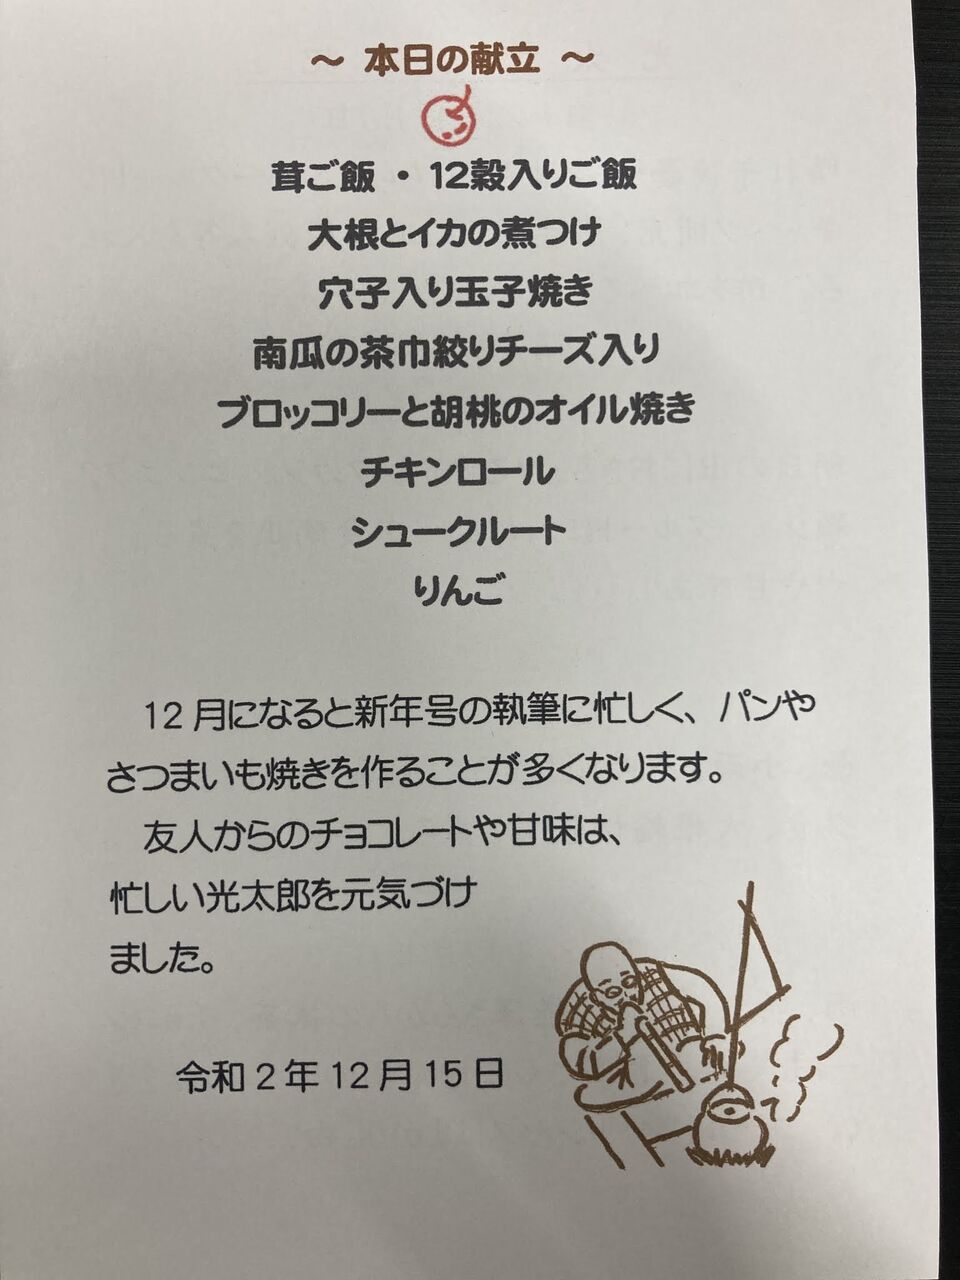 ～ 本日の献立 ～
茸ご飯 ・ 12穀入りご飯
大根とイカの煮つけ
穴子入り玉子焼き
南瓜の茶巾絞りチーズ入り
ブロッコリーと胡桃のオイル焼き
チキンロール
シュークルート
りんご
12月になると新年号の執筆に忙しく、パンや
さつまいも焼きを作ることが多くなります。
友人からのチョコレートや甘味は、
忙しい光太郎を元気づけ
ました。
令和2年12月15日